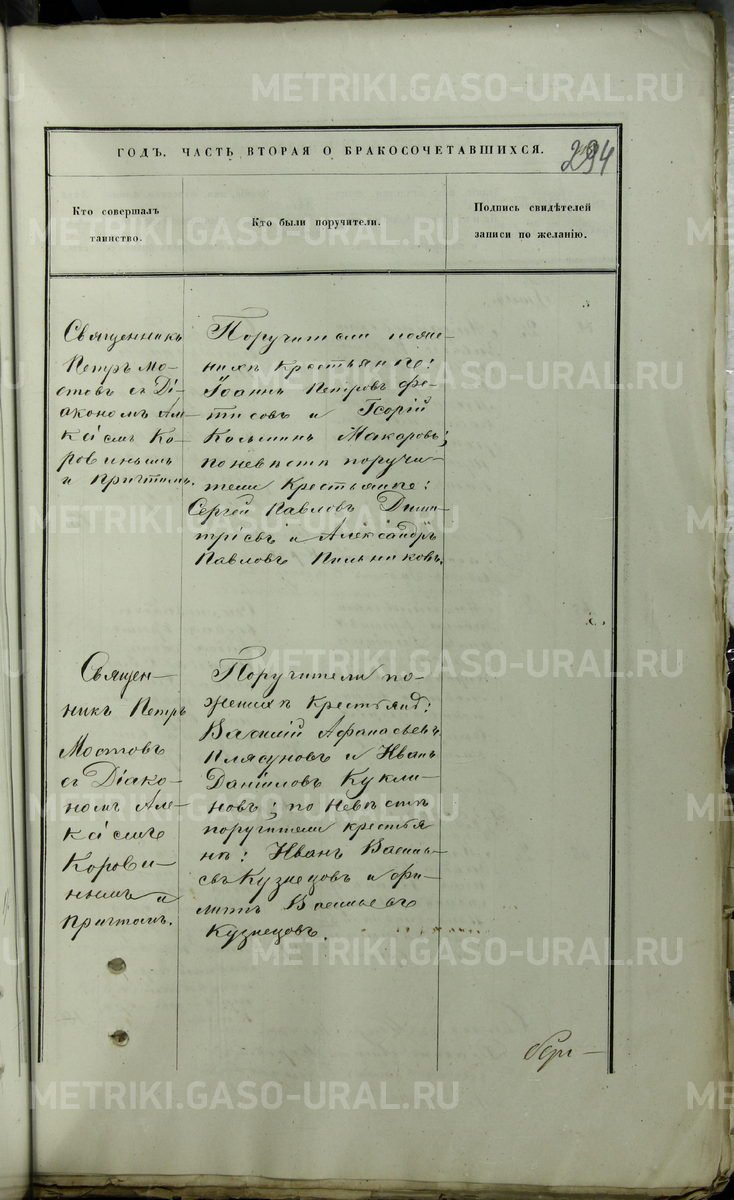 METRIKI.GASO-URAL.RU
ГОДЪ. ЧАСТЬ ВТОРАЯ О БРАКОСОЧЕТАВШИХСЯ.
294
Кто совершалъ
таинство.
Кто были поручители.
Подпись свидѣтелей
записи по желанію.
Священникъ
Петръ Мо-
стовъ съ Ді-
акономъ Але-
ксіемъ Ко-
ровинымъ
и Причтомъ.
Поручители по же-
нихѣ Крестьяне:
Іоаннъ Петровъ Фе-
тисовъ и Георгій
Козьминъ Макаровъ;
по невѣстѣ поручи-
тели Крестьяне:
Сергей Павловъ Дими-
тріевъ и Александръ
Павловъ Пильниковъ.
Священ-
никъ Петръ
Мостовъ
съ Діако-
номъ Але-
ксіемъ
Корови-
нымъ и
Причтомъ.
Поручители по
женихѣ Крестьяне:
Василій Афанасьевъ
Плясуновъ и Иванъ
Даніиловъ Кукли-
новъ; по Невѣстѣ
поручители крестья
не: Иванъ Василь-
евъ Кузнецовъ и Фи-
липпъ Васильевъ
Кузнецовъ.